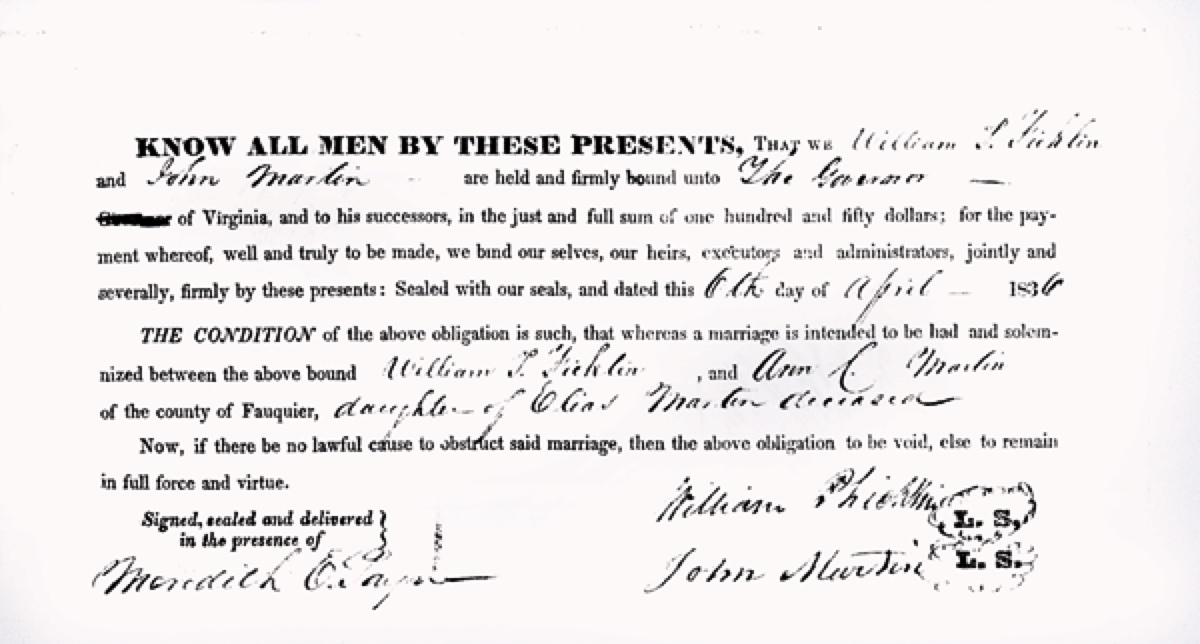 KNOW ALL MEN BY THESE PRESENTS, THAT WE William S. Ficklin
and John Martin are held and firmly bound unto The Governor —
of Virginia, and to his successors, in the just and full sum of one hundred and fifty dollars; for the pay-
ment whereof, well and truly to be made, we bind our selves, our heirs, executors and administrators, jointly and
severally, firmly by these presents: Sealed with our seals, and dated this 6th day of April — 1836
THE CONDITION of the above obligation is such, that whereas a marriage is intended to be had and solem-
nized between the above bound William S. Ficklin , and Ann C Martin
of the county of Fauquier, daughter of Elias Martin deceased
Now, if there be no lawful cause to obstruct said marriage, then the above obligation to be void, else to remain
in full force and virtue.
Signed, sealed and delivered }
in the presence of }
William Phicklin L. S.
Meredith E. Payne
John Martin L. S.